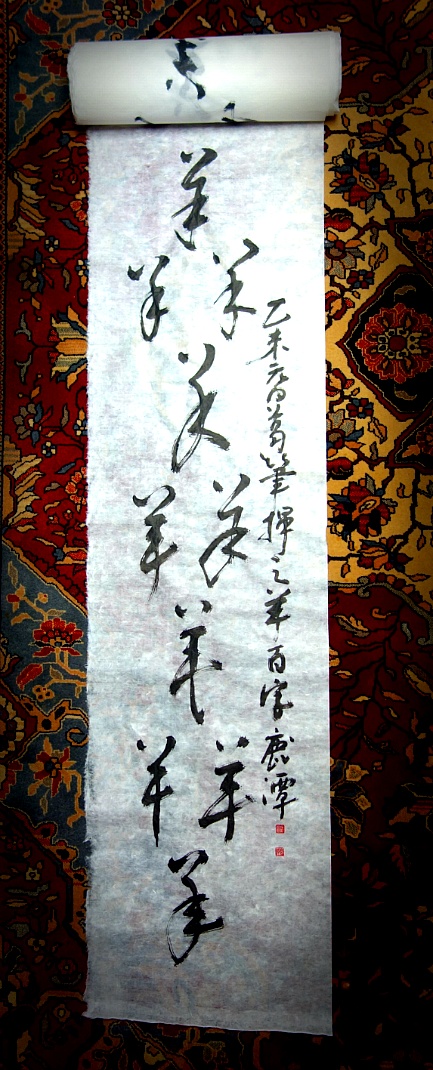 羊
羊 羊
羊
羊 羊
羊
羊 羊
羊
乙未元旦葛筆揮之羊百字 鹿潭